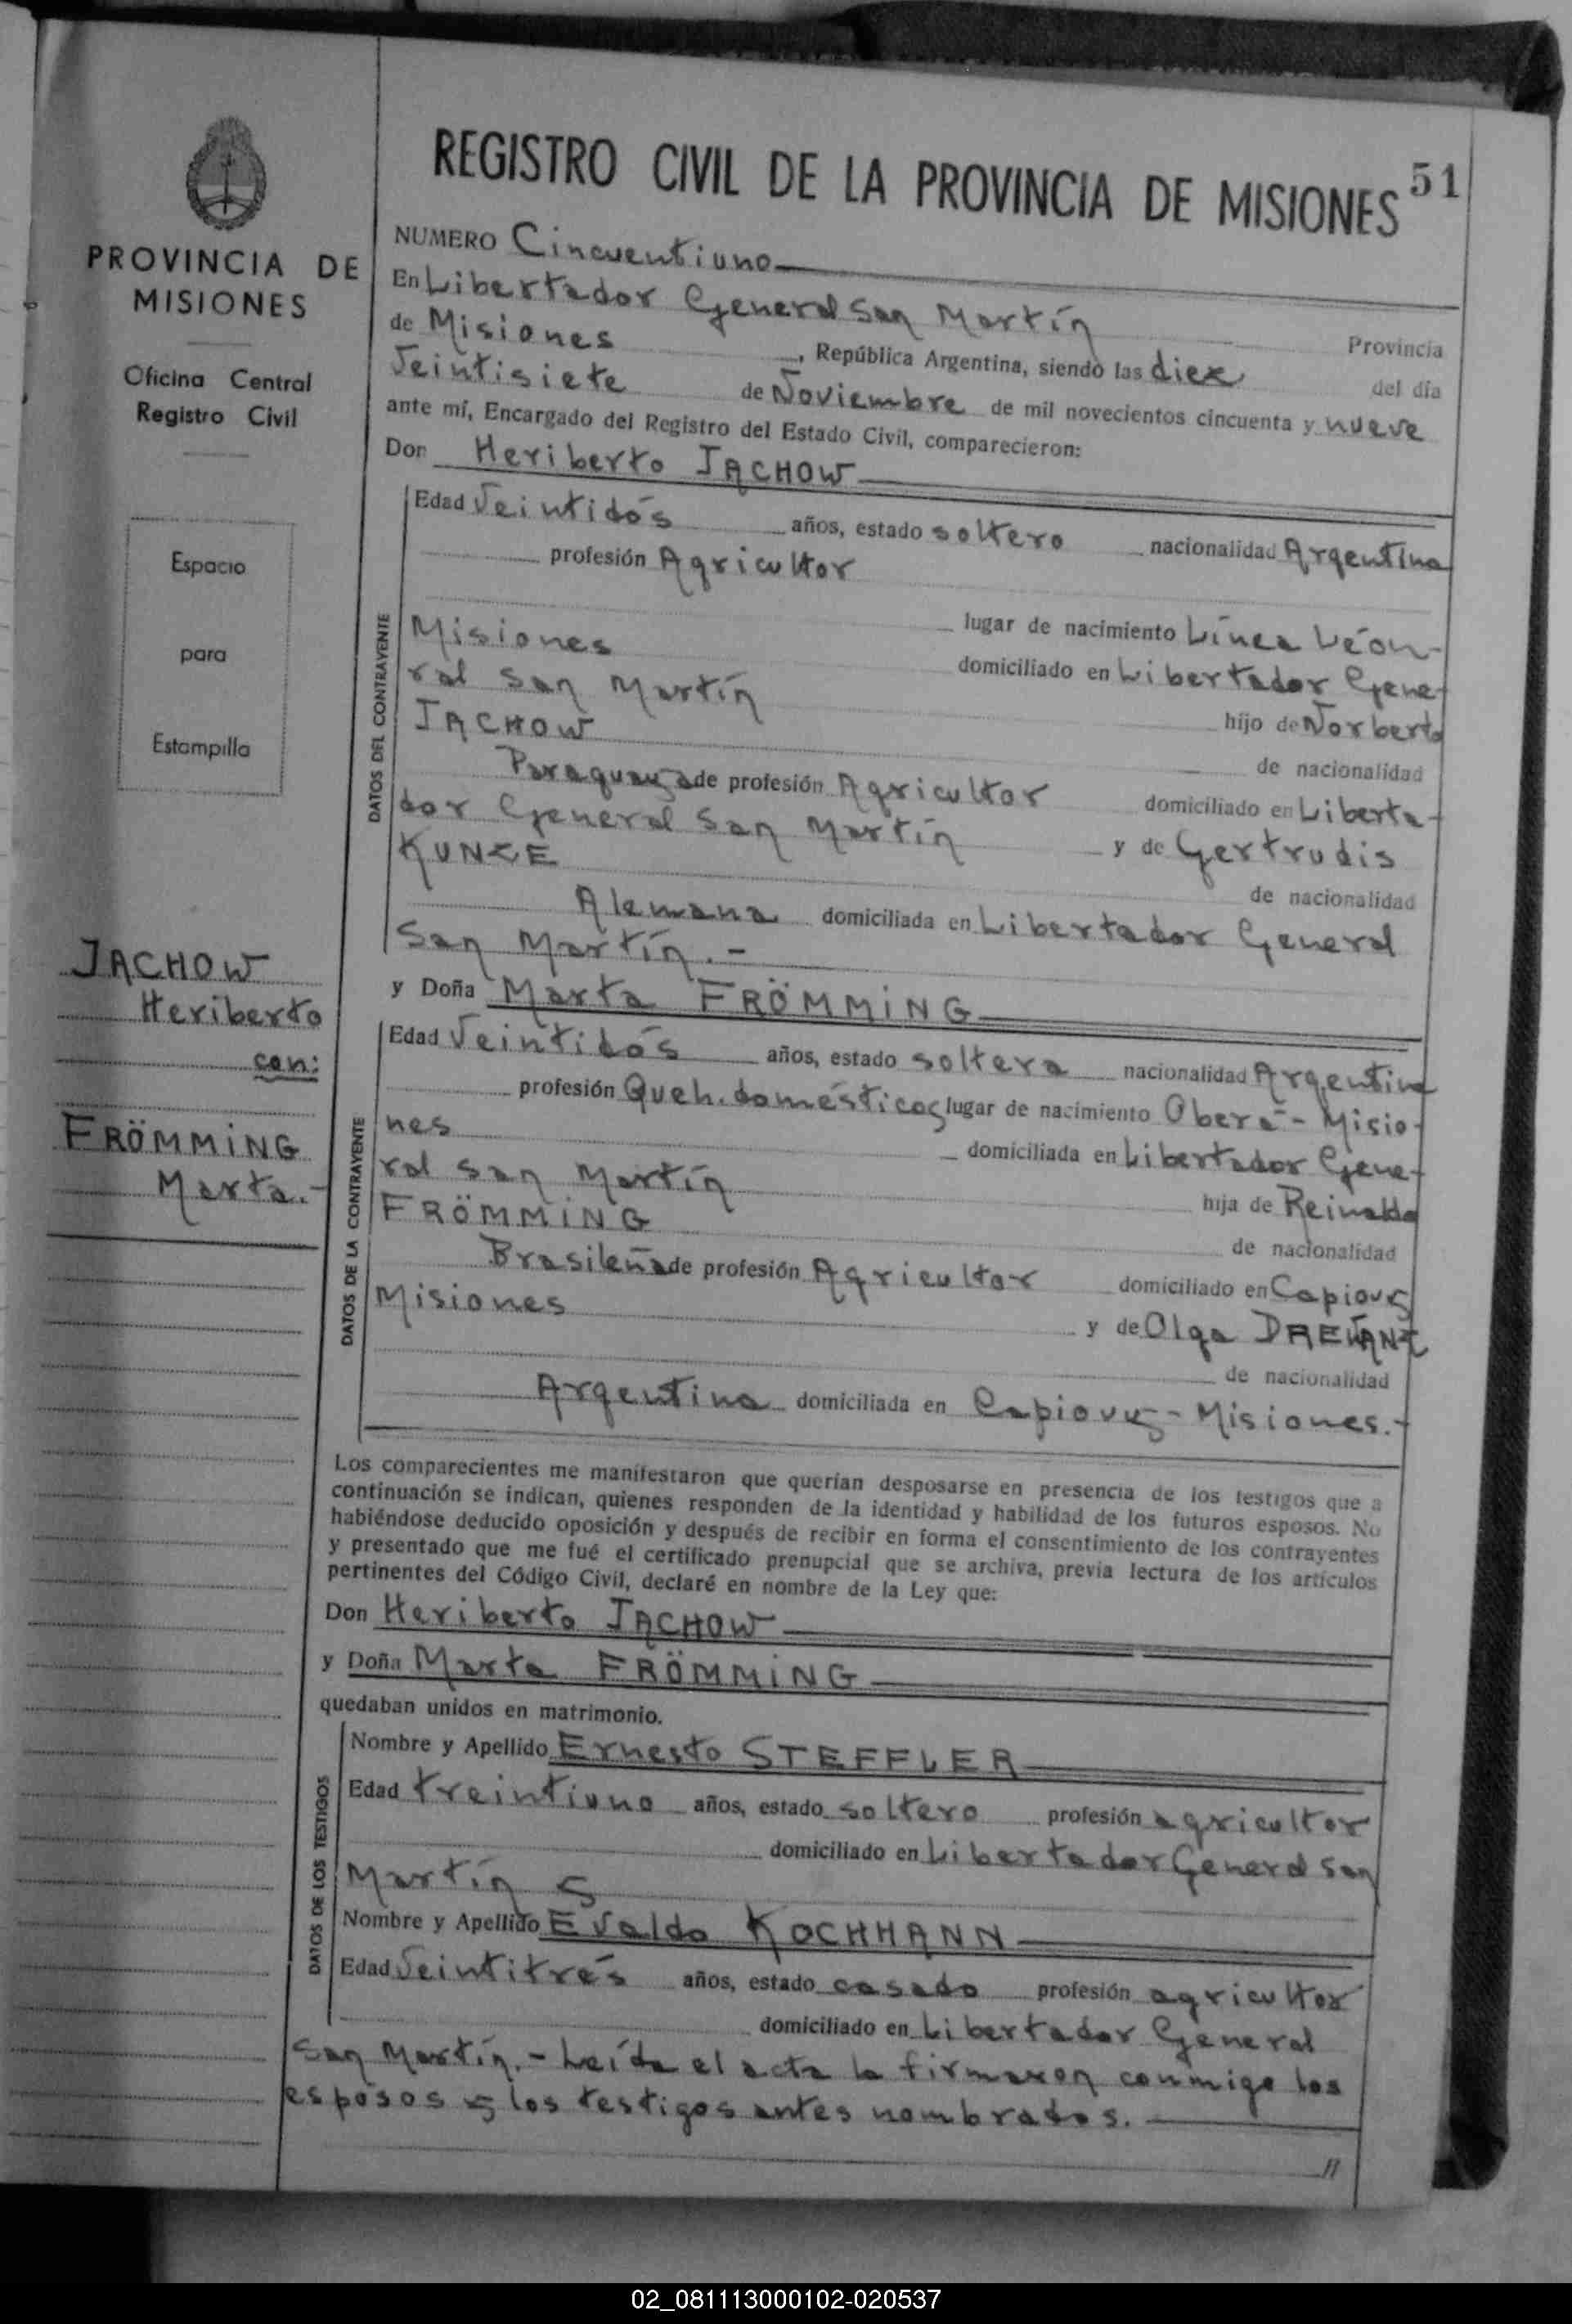 PROVINCIA DE
MISIONES
Oficina Central
Registro Civil
Espacio
para
Estampilla
JACHOW
Heriberto
con:
FRÖMMING
Marta.-
REGISTRO CIVIL DE LA PROVINCIA DE MISIONES 51
NUMERO Cincuentiuno
En Libertador General San Martín Provincia
de Misiones, República Argentina, siendo las diez del día
Veintisiete de Noviembre de mil novecientos cincuenta y nueve
ante mí, Encargado del Registro del Estado Civil, comparecieron:
Don Heriberto JACHOW
DATOS DEL CONTRAYENTE
Edad Veintidós años, estado soltero nacionalidad Argentina
profesión Agricultor
lugar de nacimiento Línea Léon-
Misiones domiciliado en Libertador Gene-
ral San Martín hijo de Norberto
JACHOW de nacionalidad
Paraguaya de profesión Agricultor domiciliado en Liberta-
dor General San Martín y de Gertrudis
KUNZE de nacionalidad
Alemana domiciliada en Libertador General
San Martín.-
y Doña Marta FRÖMMING
DATOS DE LA CONTRAYENTE
Edad Veintidós años, estado soltera nacionalidad Argentina
profesión Queh. domésticos lugar de nacimiento Oberá - Misio-
nes domiciliada en Libertador Gene-
ral San Martín hija de Reinaldo
FRÖMMING de nacionalidad
Brasileña de profesión Agricultor domiciliado en Capiovy
Misiones y de Olga
de nacionalidad
Argentina domiciliada en Capiovy - Misiones.-
Los comparecientes me manifestaron que querían desposarse en presencia de los testigos que a
continuación se indican, quienes responden de la identidad y habilidad de los futuros esposos. No
habiéndose deducido oposición y después de recibir en forma el consentimiento de los contrayentes
y presentado que me fué el certificado prenupcial que se archiva, previa lectura de los artículos
pertinentes del Código Civil, declaré en nombre de la Ley que:
Don Heriberto JACHOW
y Doña Marta FRÖMMING
quedaban unidos en matrimonio.
DATOS DE LOS TESTIGOS
Nombre y Apellido Ernesto STEFFLER
Edad treintiuno años, estado soltero profesión agricultor
domiciliado en Libertador General San
Martín y
Nombre y Apellido Evaldo KOCHHANN
Edad Veintitrés años, estado casado profesión agricultor
domiciliado en Libertador General
San Martín.- Leída el acta la firmaron conmigo los
esposos y los testigos antes nombrados.
//
02_081113000102-020537